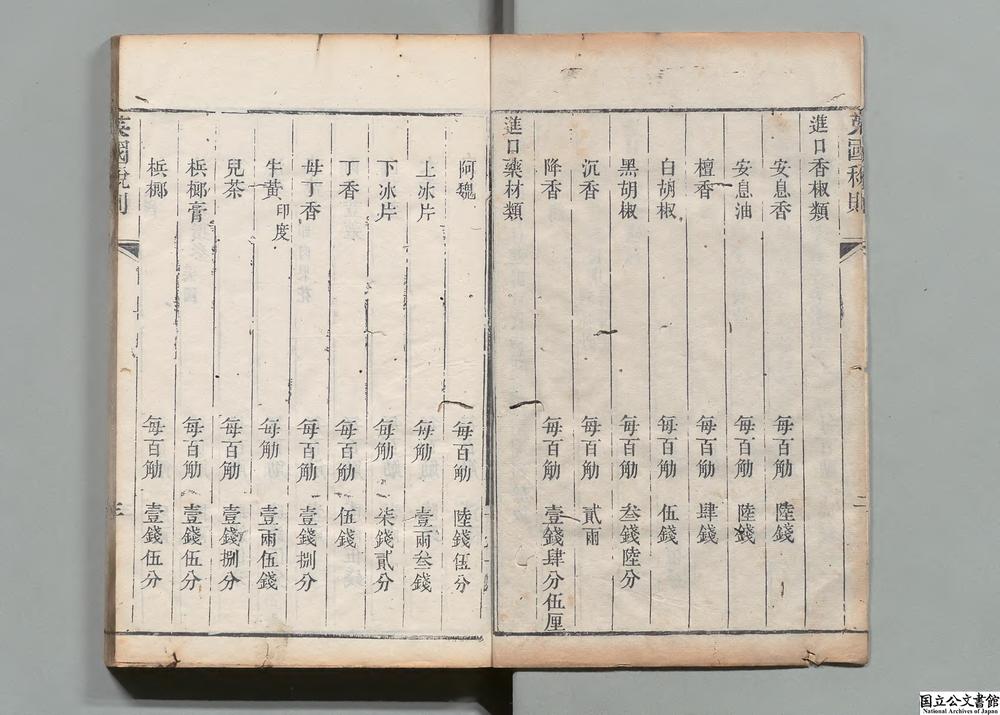 英國稅則
二
進口香椒類
安息香 每百觔 陸錢
安息油 每百觔 陸錢
檀香 每百觔 肆錢
白胡椒 每百觔 伍錢
黑胡椒 每百觔 叁錢陸分
沉香 每百觔 貳兩
降香 每百觔 壹錢肆分伍厘
進口藥材類
阿魏 每百觔 陸錢伍分
上冰片 每觔 壹兩叁錢
下冰片 每觔 柒錢貳分
丁香 每百觔 伍錢
母丁香 每百觔 壹錢捌分
牛黃印度 每觔 壹兩伍錢
兒茶 每百觔 壹錢捌分
梹榔膏 每百觔 壹錢伍分
梹榔 每百觔 壹錢伍分
英國稅則
三
国立公文書館
National Archives of Japan